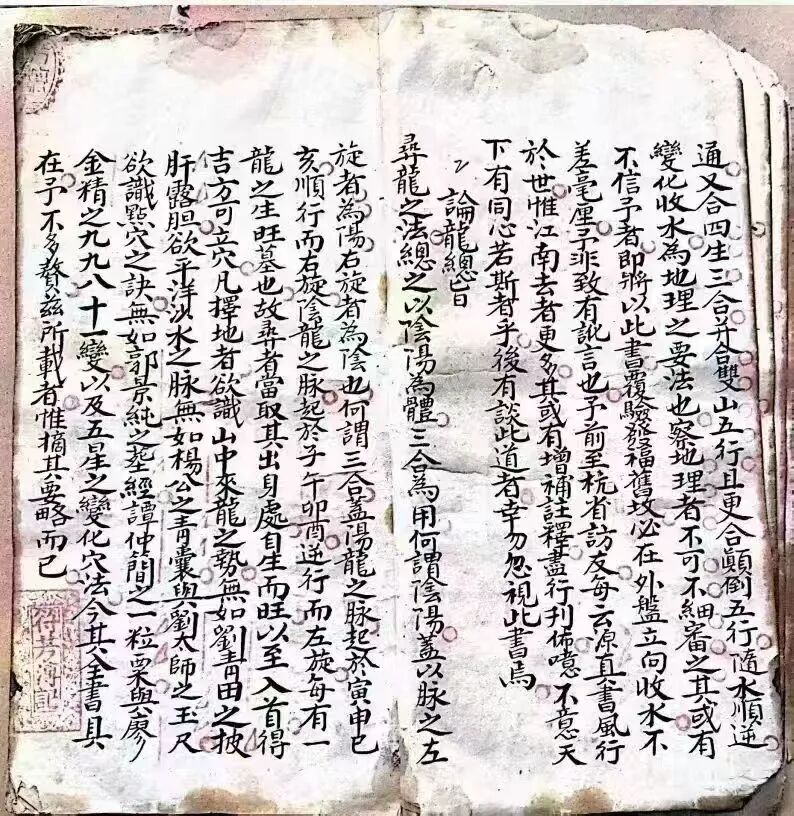 通又合四生三合并合雙山五行且更合顛倒五行隨水順逆
變化收水為地理之要法也察地理者不可不細審之其或有
不信予者即將以此書覆驗發福舊坟必在外盤立向收水不
差毫厘予非致有訛言也予前至杭省訪友每云源真書風行
於世惟江南去者更多其或有增補註釋盡行刊佈噫不意天
下有同心若斯者乎後有談此道者幸勿忽視此書焉
論龍總旨
尋龍之法總之以陰陽為體三合為用何謂陰陽盖以脉之左
旋者為陽右旋者為陰也何謂三合盖陽龍之脉起於寅申巳
亥順行而右旋陰龍之脉起於子午卯酉逆行而左旋每有一
龍之生旺墓也故尋者當取其出身處自生而旺以至入首得
吉方可立穴凡擇地者欲識山中來龍之勢無如劉青田之披
肝露胆欲平洋沙水之脉無如楊公之青囊與劉太師之玉尺
欲識點穴之訣無如郭景純之塟經譚仲簡之一粒粟與廖
金精之九九八十一變以及五星之變化穴法今其全書具
在予不多贅茲所載者惟摘其要略而已